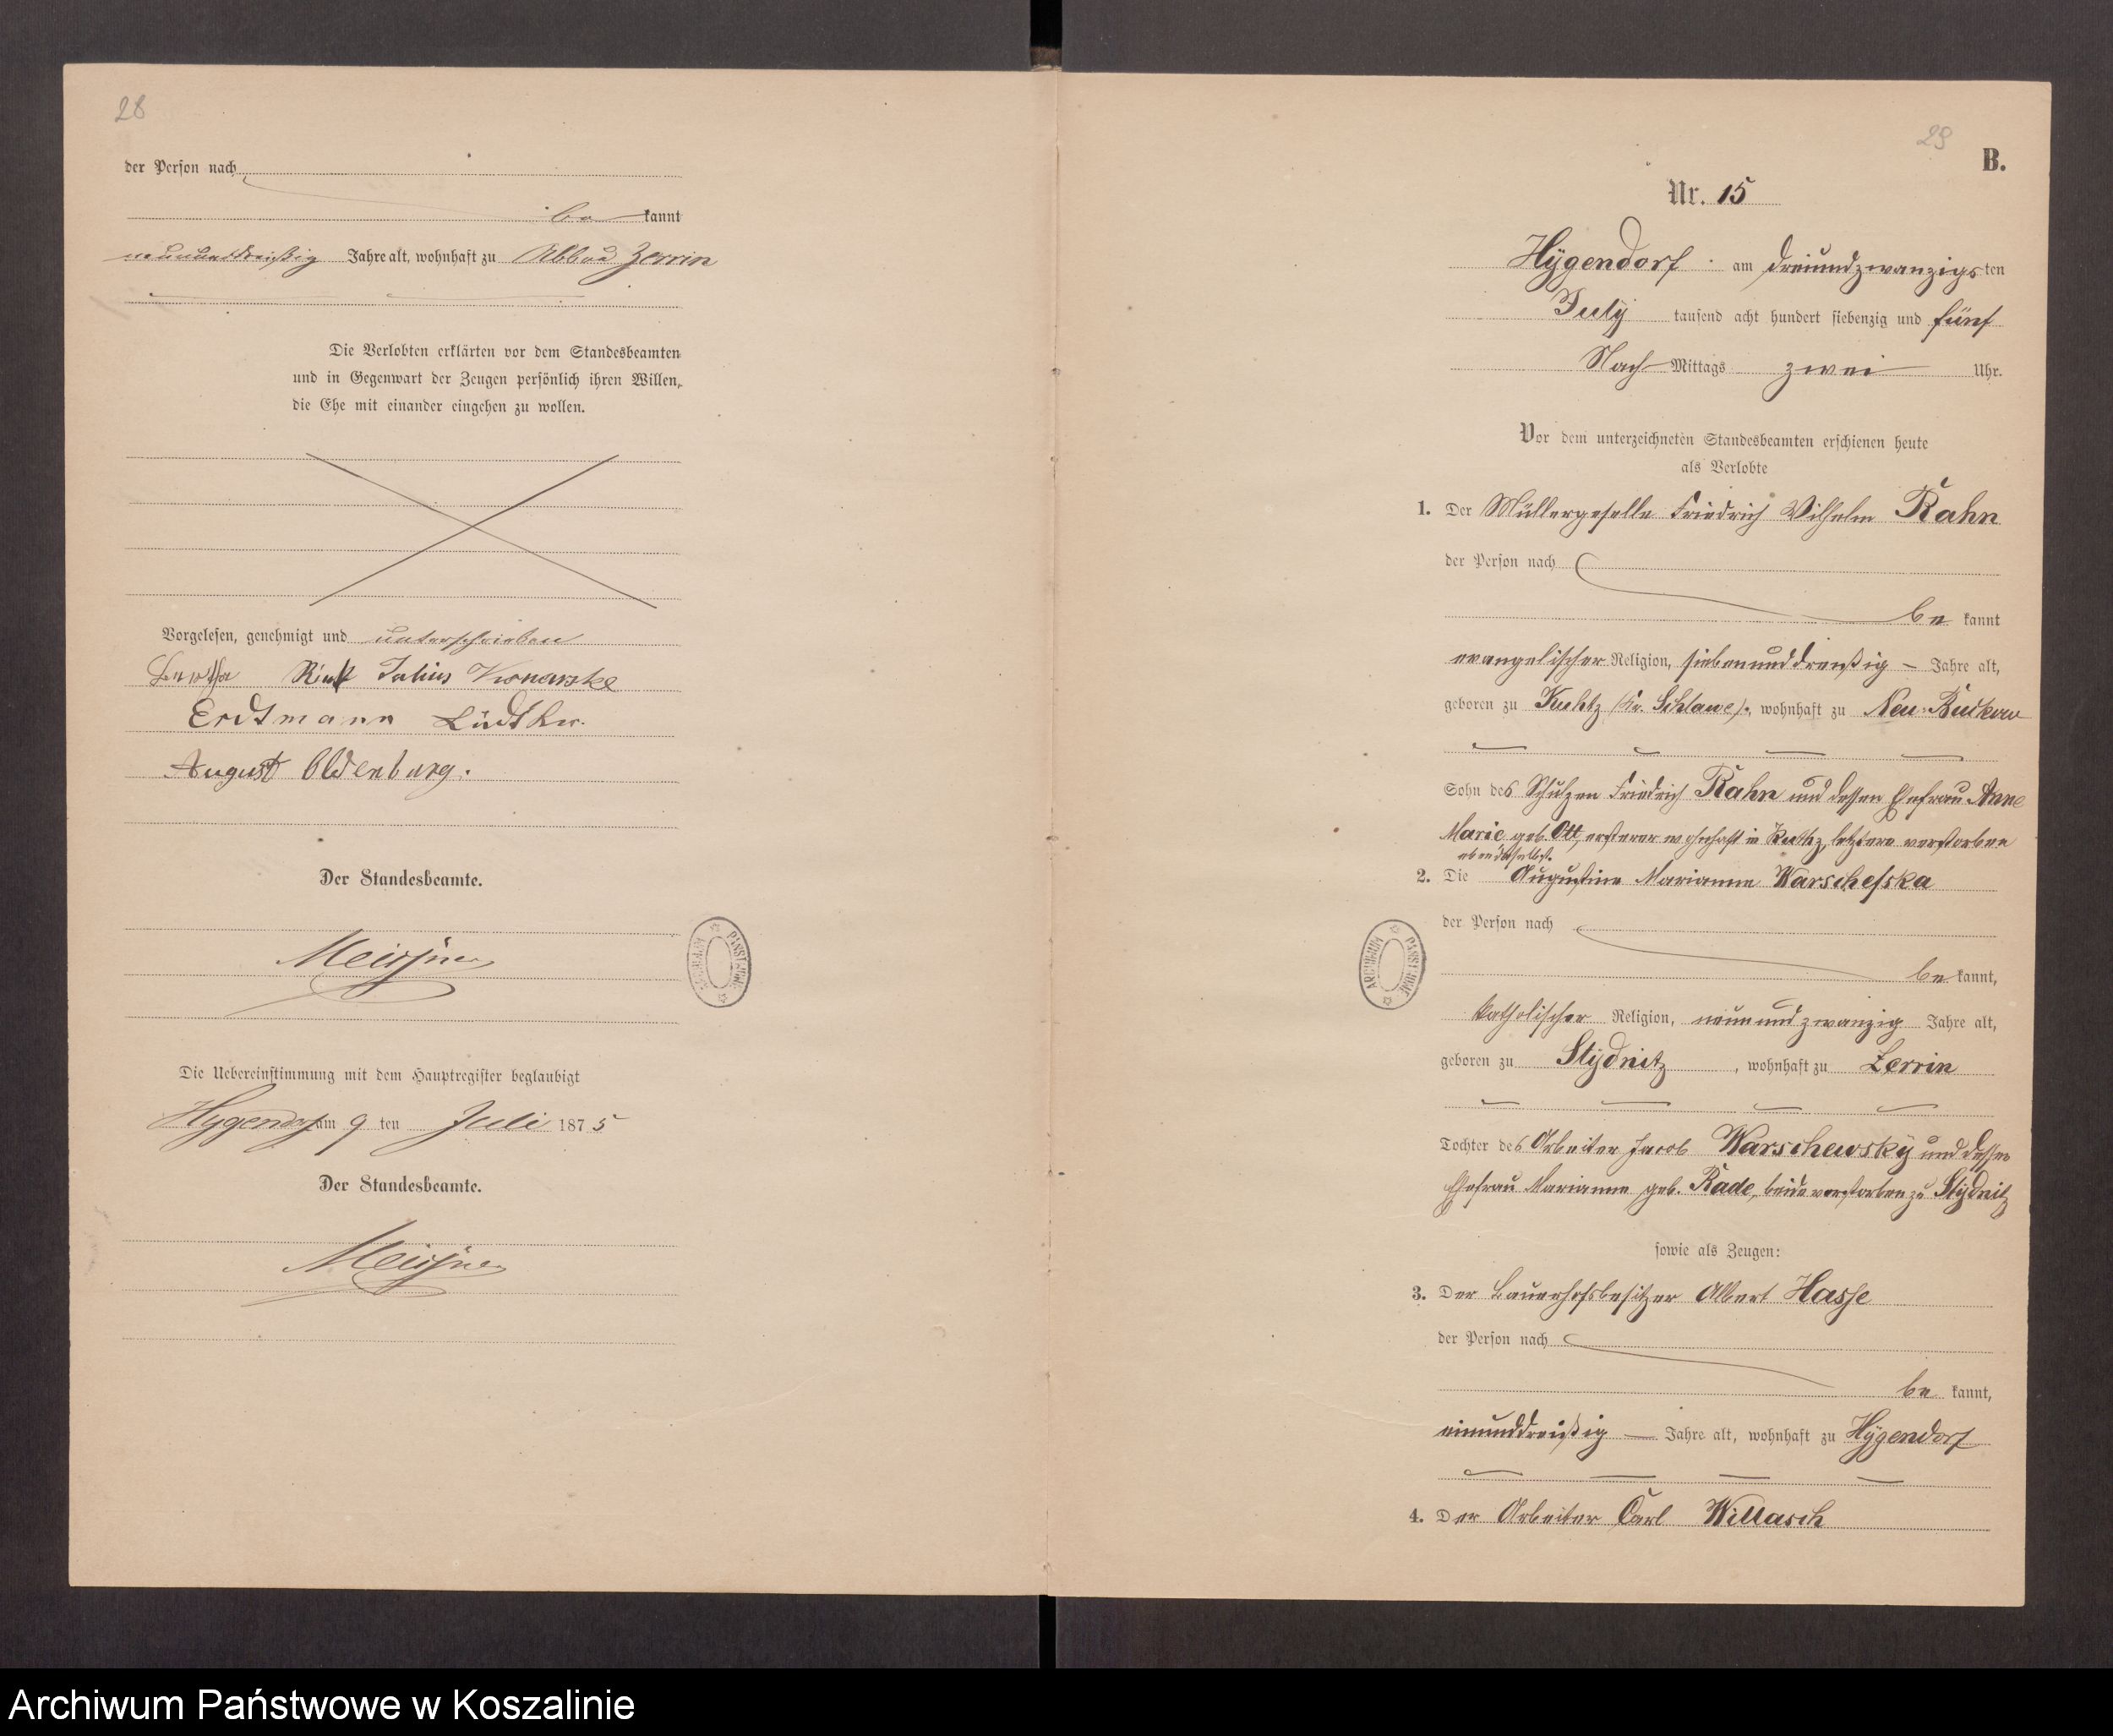 28
der Person nach
be kannt
neununddreißig Jahre alt, wohnhaft zu Abbau Zerrin
Die Verlobten erklärten vor dem Standesbeamten
und in Gegenwart der Zeugen persönlich ihren Willen,
die Ehe mit einander eingehen zu wollen.
Vorgelesen, genehmigt und unterschrieben
Bertha Julius
Erdtmann Lüdtke.
August Oldenburg.
Der Standesbeamte.
Meissner
ARCHIWUM PAŃSTWOWE
Die Uebereinstimmung mit dem Hauptregister beglaubigt
Hygendorf am 9 ten Juli 1875
Der Standesbeamte.
Meissner
29
B.
Nr. 15
Hÿgendorf am dreiundzwanzigsten
Julÿ tausend acht hundert siebenzig und fünf
Nach Mittags zwei Uhr.
Vor dem unterzeichneten Standesbeamten erschienen heute
als Verlobte
1. Der Müllergeselle Friedrich Wilhelm Rahn
der Person nach
be kannt
evangelischer Religion, siebenunddreußig Jahre alt,
geboren zu Kuhtz (Kr. Schlawe), wohnhaft zu Neu-Buckow
Sohn des Schulzen Friedrich Rahn und dessen Ehefrau Anne
Marie geb. Ott, ersterer wohnhaft in Kuhtz, letztere verstorben
ebendaselbst.
2. Die Augustine Marianne Warschefska
der Person nach
be kannt,
katholischer Religion, neunundzwanzig Jahre alt,
geboren zu Stÿdnitz, wohnhaft zu Zerrin
Tochter des Arbeiter Jacob Warschewskÿ und dessen
Ehefrau Marianne geb. Rade, beide verstorben zu Stÿdnitz
sowie als Zeugen:
3. Der Bauerhofsbesitzer Albert Hasse
der Person nach
be kannt,
einunddreißig Jahre alt, wohnhaft zu Hÿgendorf
4. Der Arbeiter Carl Willasch
ARCHIWUM PAŃSTWOWE
Archiwum Państwowe w Koszalinie